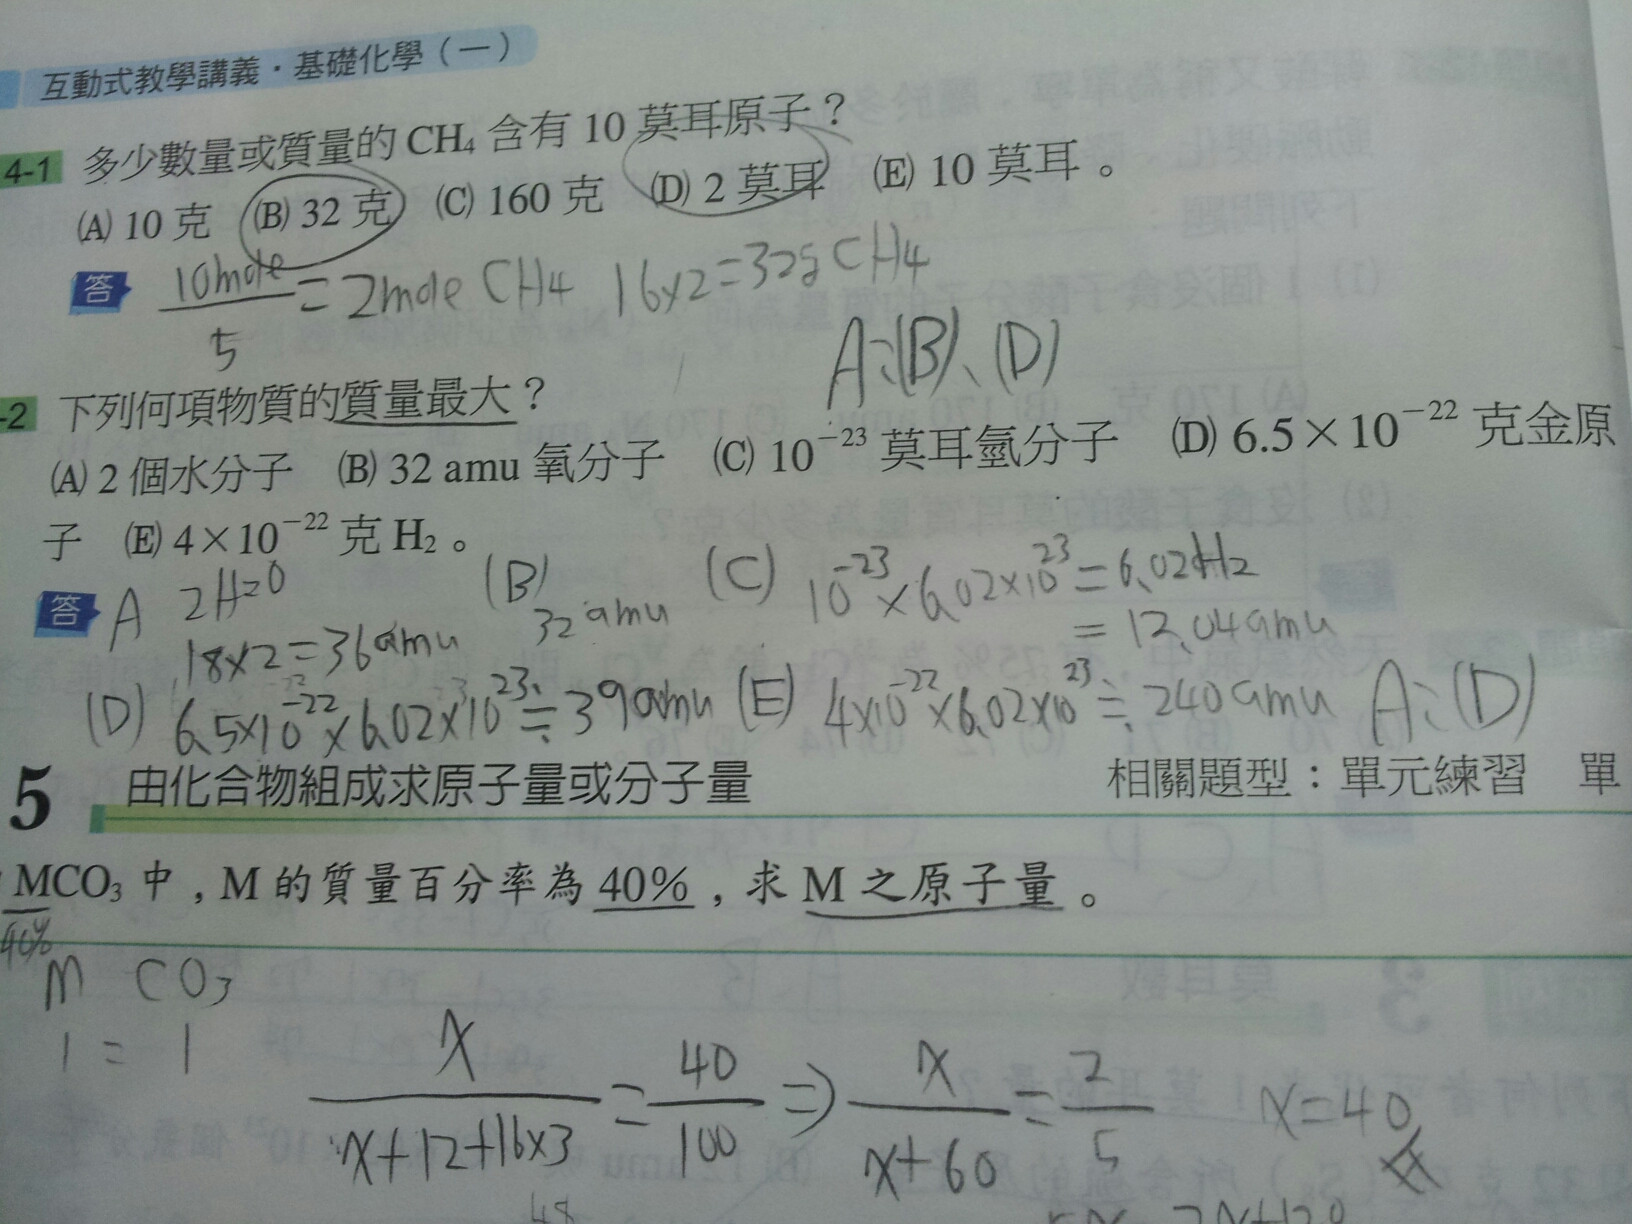 互動式教學講義·基礎化學(一)
4-1 多少數量或質量的 CH₄ 含有 10 莫耳原子？
(A) 10 克 (B) 32 克 (C) 160 克 (D) 2 莫耳 (E) 10 莫耳。
答 10mole/5 = 2mole CH4 16x2=32g CH4
A:(B)、(D)
-2 下列何項物質的質量最大？
(A) 2 個水分子 (B) 32 amu 氧分子 (C) 10⁻²³ 莫耳氫分子 (D) 6.5×10⁻²² 克金原
子 (E) 4×10⁻²² 克 H₂。
答 A 2H2O (B) 32amu (C) 10⁻²³×6.02×10²³=6.02H2
18x2=36amu =12.04amu
(D) 6.5×10⁻²²×6.02×10²³≒39amu (E) 4×10⁻²²×6.02×10²³≒240amu A:(D)
5 由化合物組成求原子量或分子量 相關題型：單元練習 單
MCO₃ 中，M 的質量百分率為 40%，求 M 之原子量。
40%
M CO3
1 = 1
x/(x+12+16x3) = 40/100 => x/(x+60) = 2/5 x=40
48